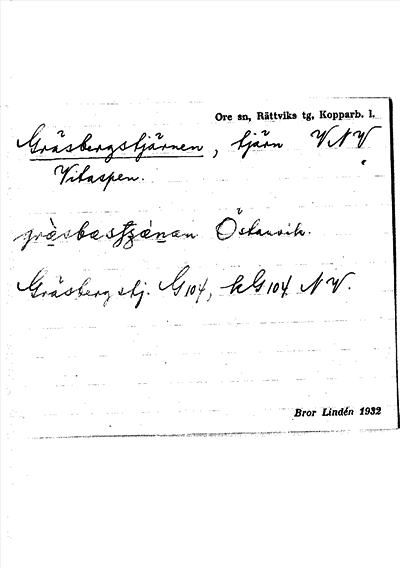 Ore sn, Rättviks tg, Kopparb. l.
Gräsbergstjärnen, tjärn VNV
Vitaspen.
Östanvik.
Gräsbergstj. G104, kG104 NV.
Bror Lindén 1932